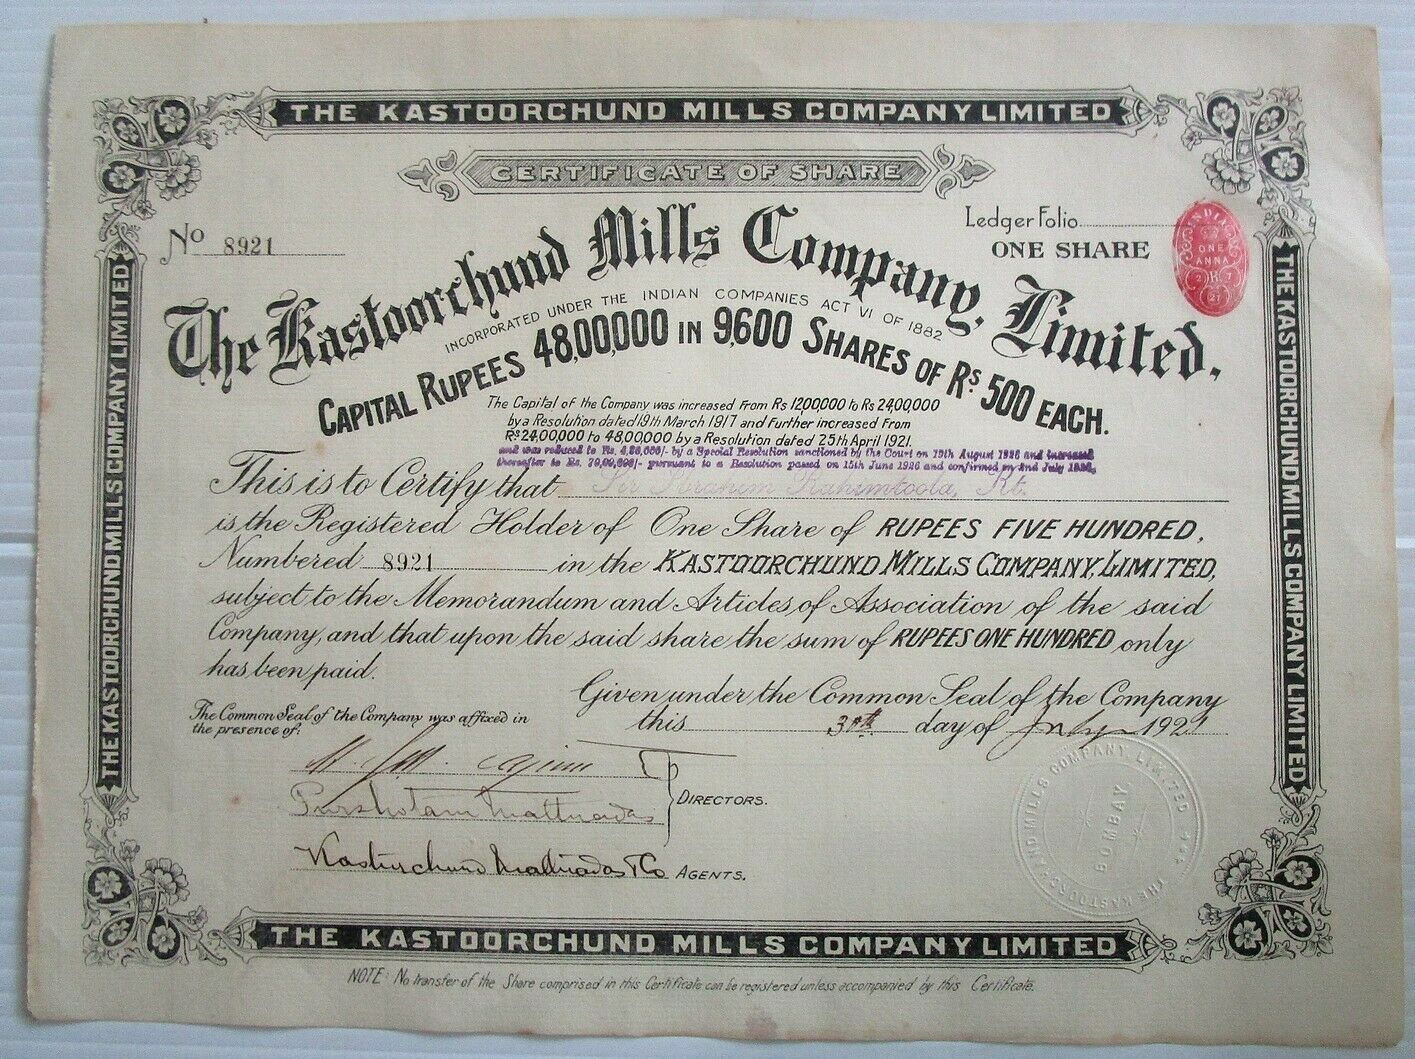 THE KASTOORCHUND MILLS COMPANY LIMITED
CERTIFICATE OF SHARE
No 8921
Ledger Folio
ONE SHARE
INDIA
ONE
ANNA
2 R 7
21
The Kastoorchund Mills Company, Limited.
INCORPORATED UNDER THE INDIAN COMPANIES ACT VI OF 1882
CAPITAL RUPEES 48,00,000 IN 9,600 SHARES OF Rs 500 EACH.
The Capital of the Company was increased From Rs 12,00,000 to Rs 24,00,000
by a Resolution dated 19th March 1917 and Further increased From
Rs 24,00,000 to 48,00,000 by a Resolution dated 25th April 1921.
and was reduced to Rs. by a Special Resolution sanctioned by the Court on August 1926 and increased
thereafter to Rs. pursuant to a Resolution passed on 15th June 1926 and confirmed on 2nd July
This is to Certify that Sir Ibrahim Rahimtoola, Kt.
is the Registered Holder of One Share of RUPEES FIVE HUNDRED,
Numbered 8921 in the KASTOORCHUND MILLS COMPANY, LIMITED,
subject to the Memorandum and Articles of Association of the said
Company, and that upon the said share the sum of RUPEES ONE HUNDRED only
has been paid.
Given under the Common Seal of the Company
this 30th day of July 1921
The Common Seal of the Company was affixed in
the presence of:
Purshotam Mathuradas
DIRECTORS.
Kasturchund Mathuradas & Co AGENTS.
THE KASTOORCHUND MILLS COMPANY, LIMITED
BOMBAY
THE KASTOORCHUND MILLS COMPANY LIMITED
THE KASTOORCHUND MILLS COMPANY LIMITED
THE KASTOORCHUND MILLS COMPANY LIMITED
NOTE: No transfer of the Share comprised in this Certificate can be registered unless accompanied by this Certificate.